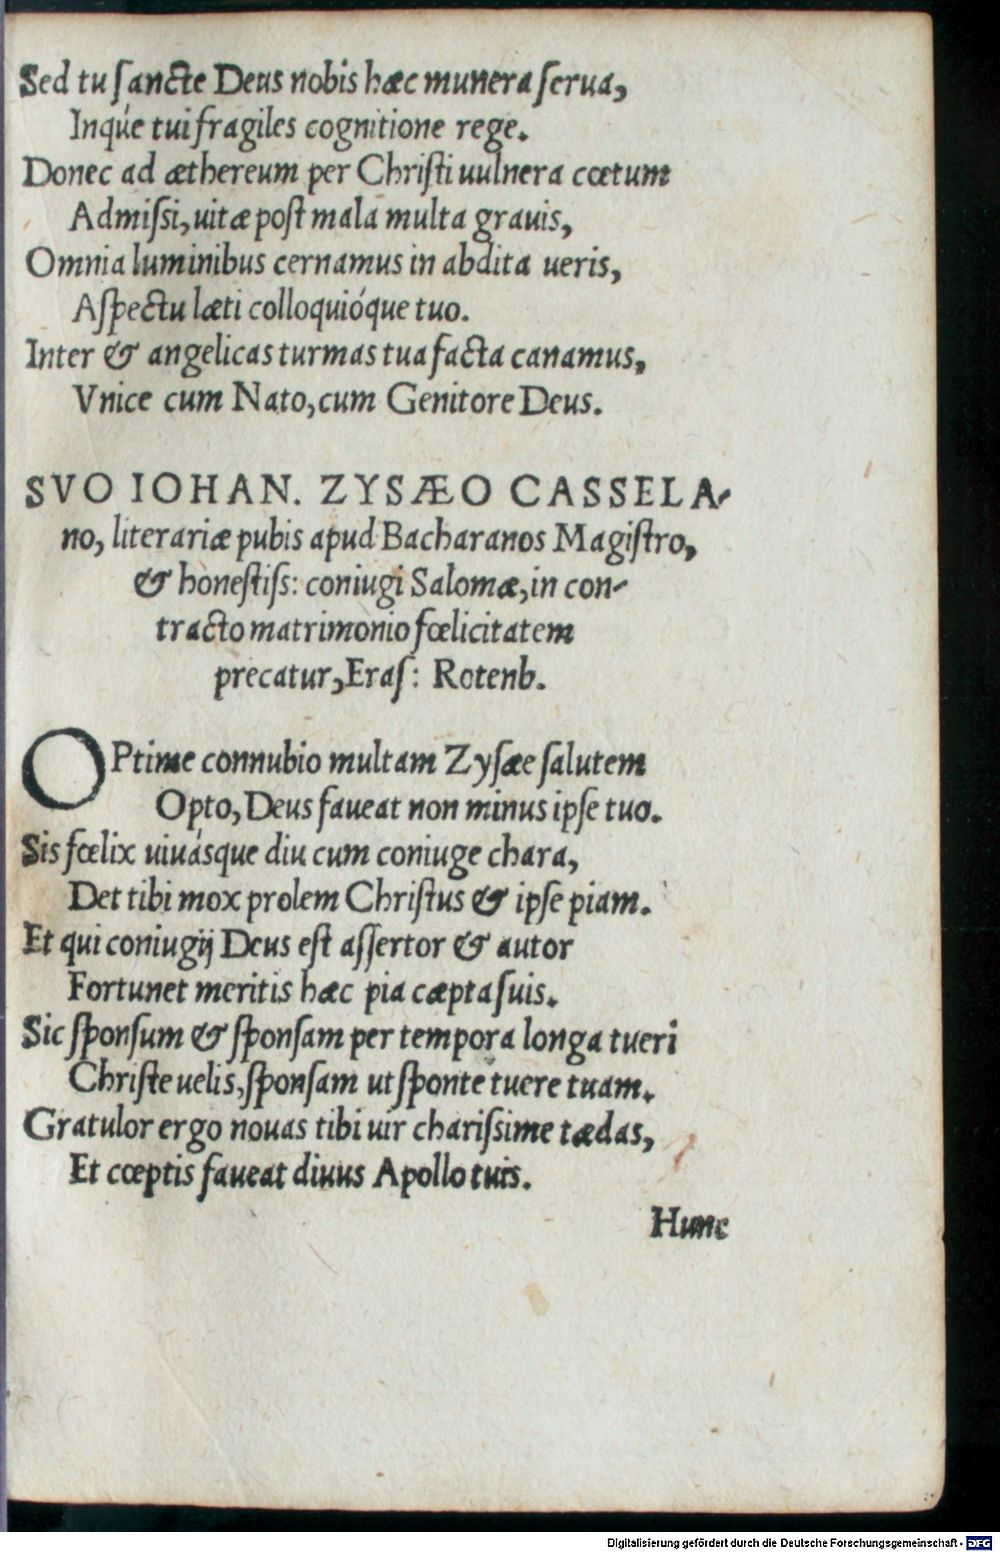 Sed tu ſancte Deus nobis hæc munera ſerua,
Inq́ue tui fragiles cognitione rege.
Donec ad æthereum per Chriſti uulnera cœtum
Admiſsi, uitæ poſt mala multa grauis,
Omnia luminibus cernamus in abdita ueris,
Aſpectu læti colloquióque tuo.
Inter & angelicas turmas tua facta canamus,
Vnice cum Nato, cum Genitore Deus.
SVO IOHAN. ZYSÆO CASSELA-
no, literariæ pubis apud Bacharanos Magiſtro,
& honeſtiſs: coniugi Salomæ, in con-
tracto matrimonio fœlicitatem
precatur, Eraſ: Rotenb.
OPtime connubio multam Zyſæe ſalutem
Opto, Deus faueat non minus ipſe tuo.
Sis fœlix uiuásque diu cum coniuge chara,
Det tibi mox prolem Chriſtus & ipſe piam.
Et qui coniugij Deus eſt aſſertor & autor
Fortunet meritis hæc pia cæpta ſuis.
Sic ſponſum & ſponſam per tempora longa tueri
Chriſte uelis, ſponſam ut ſponte tuere tuam.
Gratulor ergo nouas tibi uir chariſsime tædas,
Et cœptis faueat diuus Apollo tuis.
Hunc
Digitalisierung gefördert durch die Deutsche Forschungsgemeinschaft - DFG